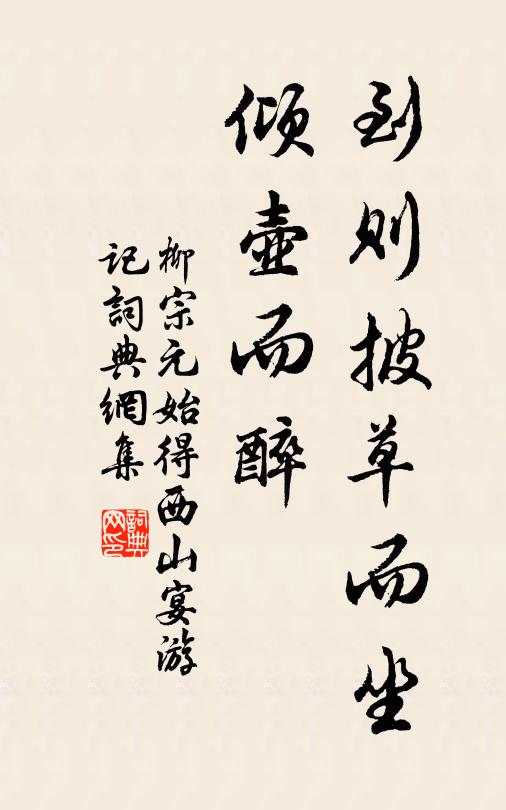 到则披草而坐
倾壶而醉
柳宗元始得西山宴游
记詞典網集
詞典
网印